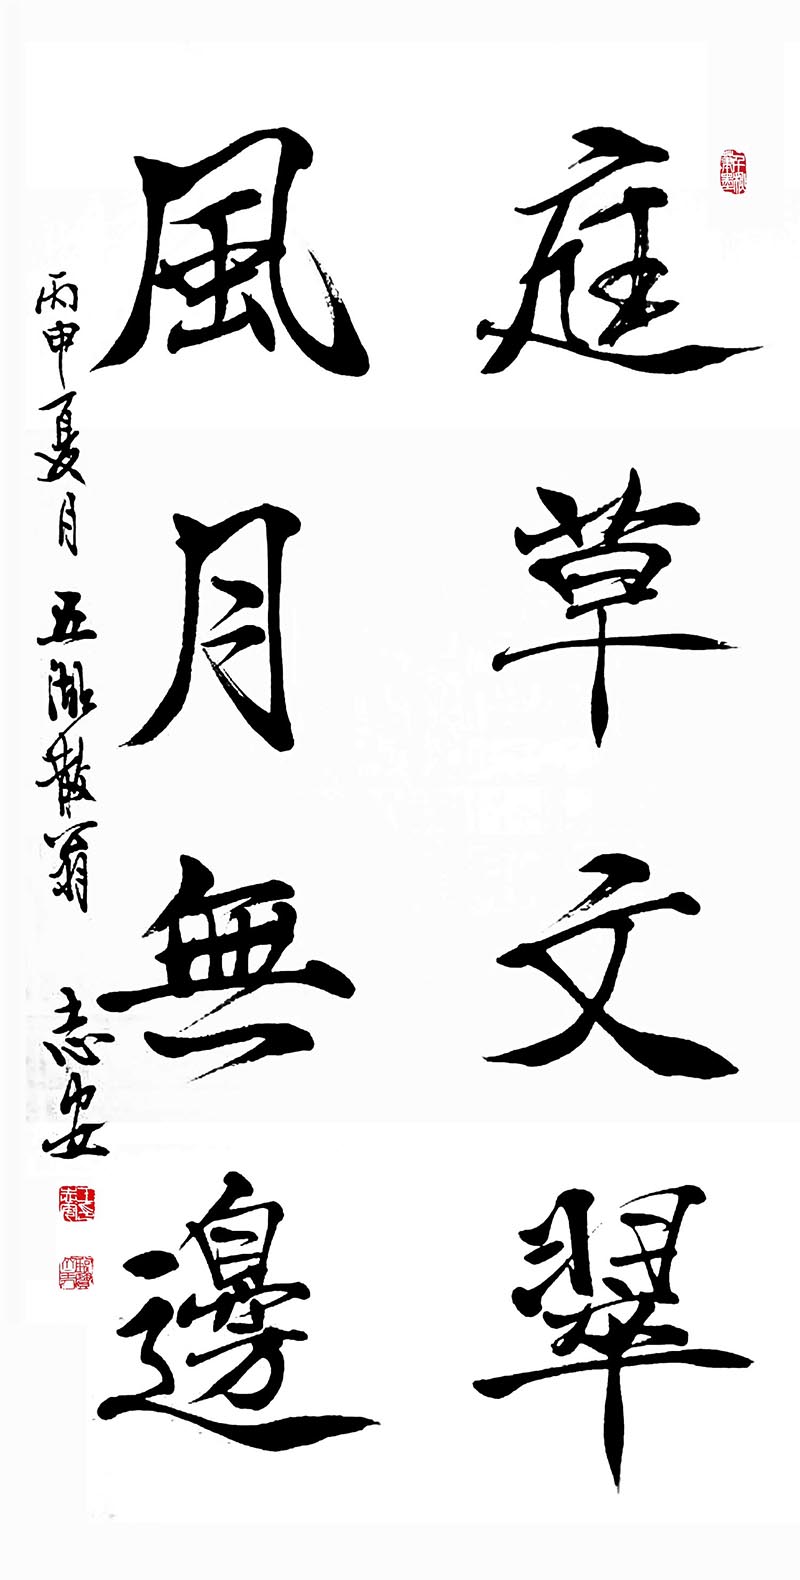 庭草文翠
風月無邊
丙申夏月五湖散翁志安